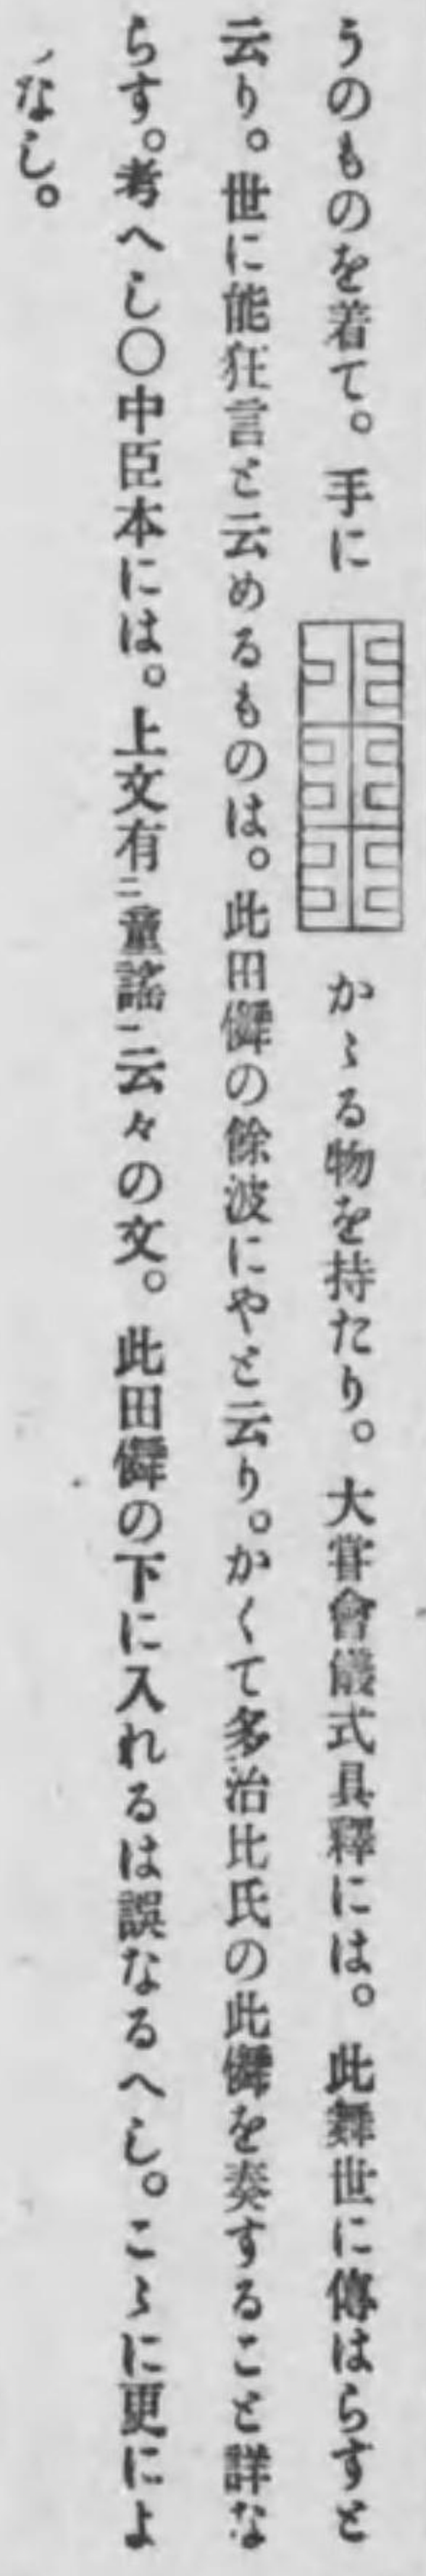 うのものを着て。手に かゝる物を持たり。大甞會儀式具釋には。此舞世に傳はらすと
云り。世に能狂言と云めるものは。此田儛の餘波にやと云り。かくて多治比氏の此儛を奏すること詳な
らす。考へし〇中臣本には。上文有㆓童謠㆒云々の文。此田儛の下に入れるは誤なるへし。こゝに更によ
しなし。